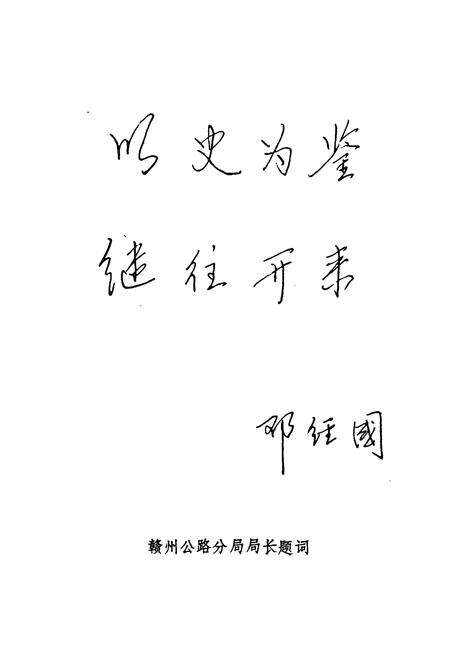 以史为鉴
继往开来
邓经國
赣州公路分局局长题词